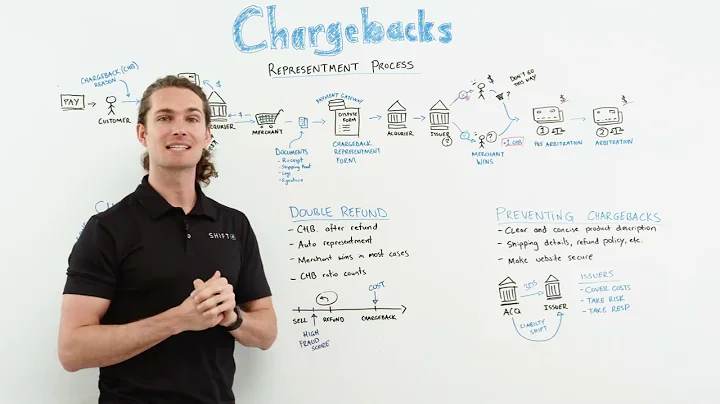 Chargebacks
REPRESENTMENT PROCESS
CHARGEBACK (CHB)
REASON
PAY
CUSTOMER
$
ACQUIRER
$
MERCHANT
DOCUMENTS
- Receipt
- Shipping Proof
- Logs
- Signature
PAYMENT GATEWAY
DISPUTE
FORM
CHARGEBACK
REPRESENTMENT
FORM
ACQUIRER
ISSUER
?
$
?
DON'T GO
THIS WAY
?
MERCHANT
WINS
+1 CHB
$
1
PRE ARBITRATION
$
2
ARBITRATION
SHIFT4
DOUBLE REFUND
- CHB. after refund
- Auto representment
- Merchant wins in most cases
- CHB ratio counts
COST
SELL
REFUND
CHARGEBACK
HIGH
FRAUD
SCORE
PREVENTING CHARGEBACKS
- Clear and concise product description
- Shipping details, refund policy, etc.
- Make website secure
3DS
ACQ
ISSUER
LIABILTY
SHIFT
ISSUERS
- COVER COSTS
- TAKE RISK
- TAKE RESP.